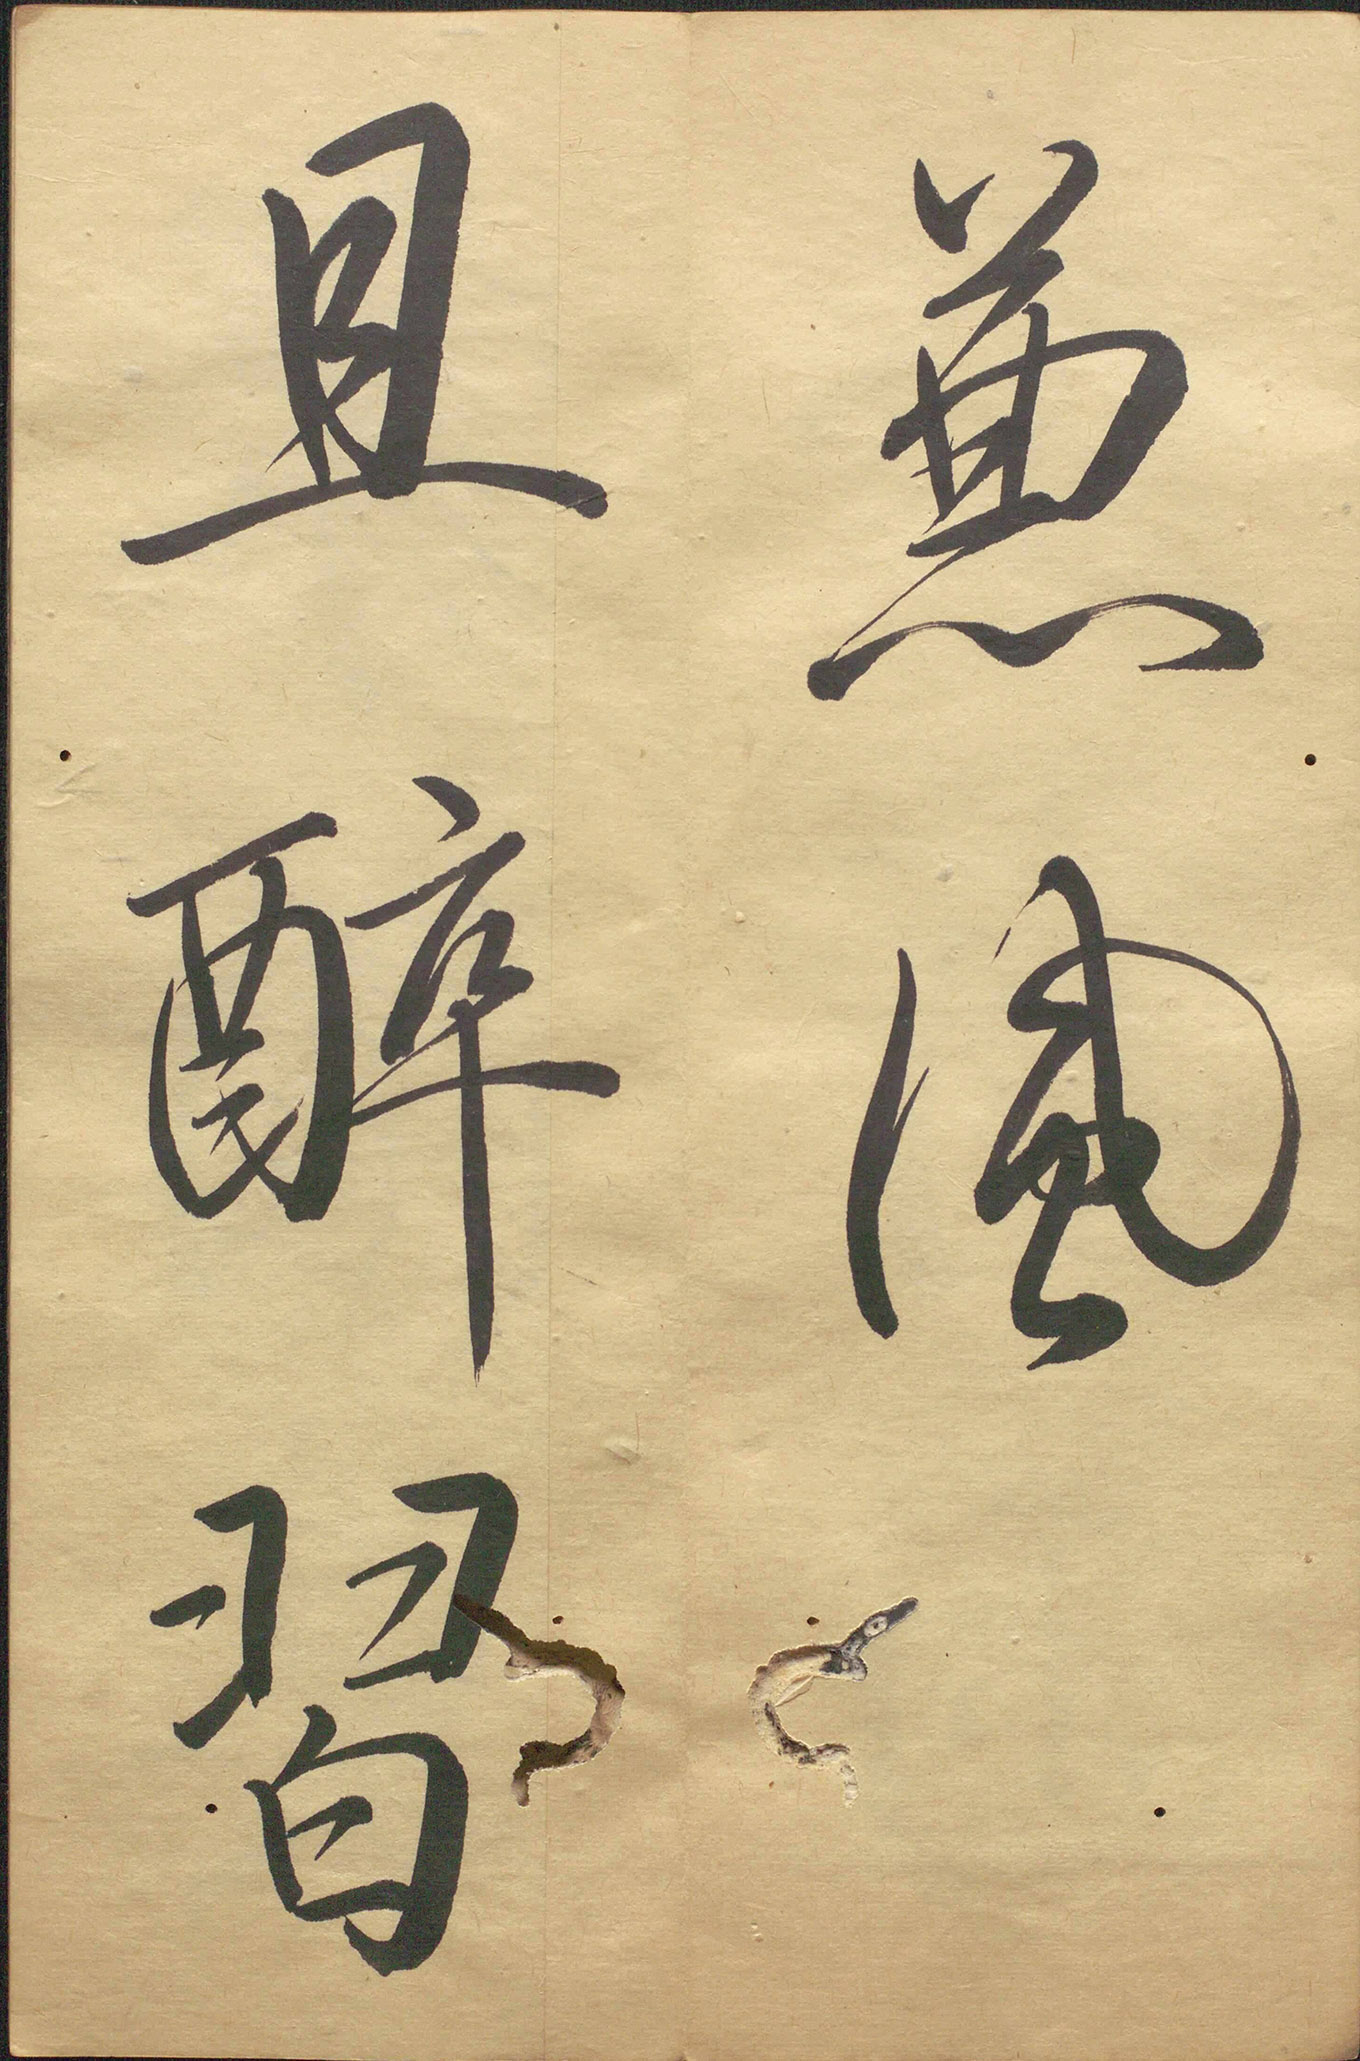 兼風
且醉習